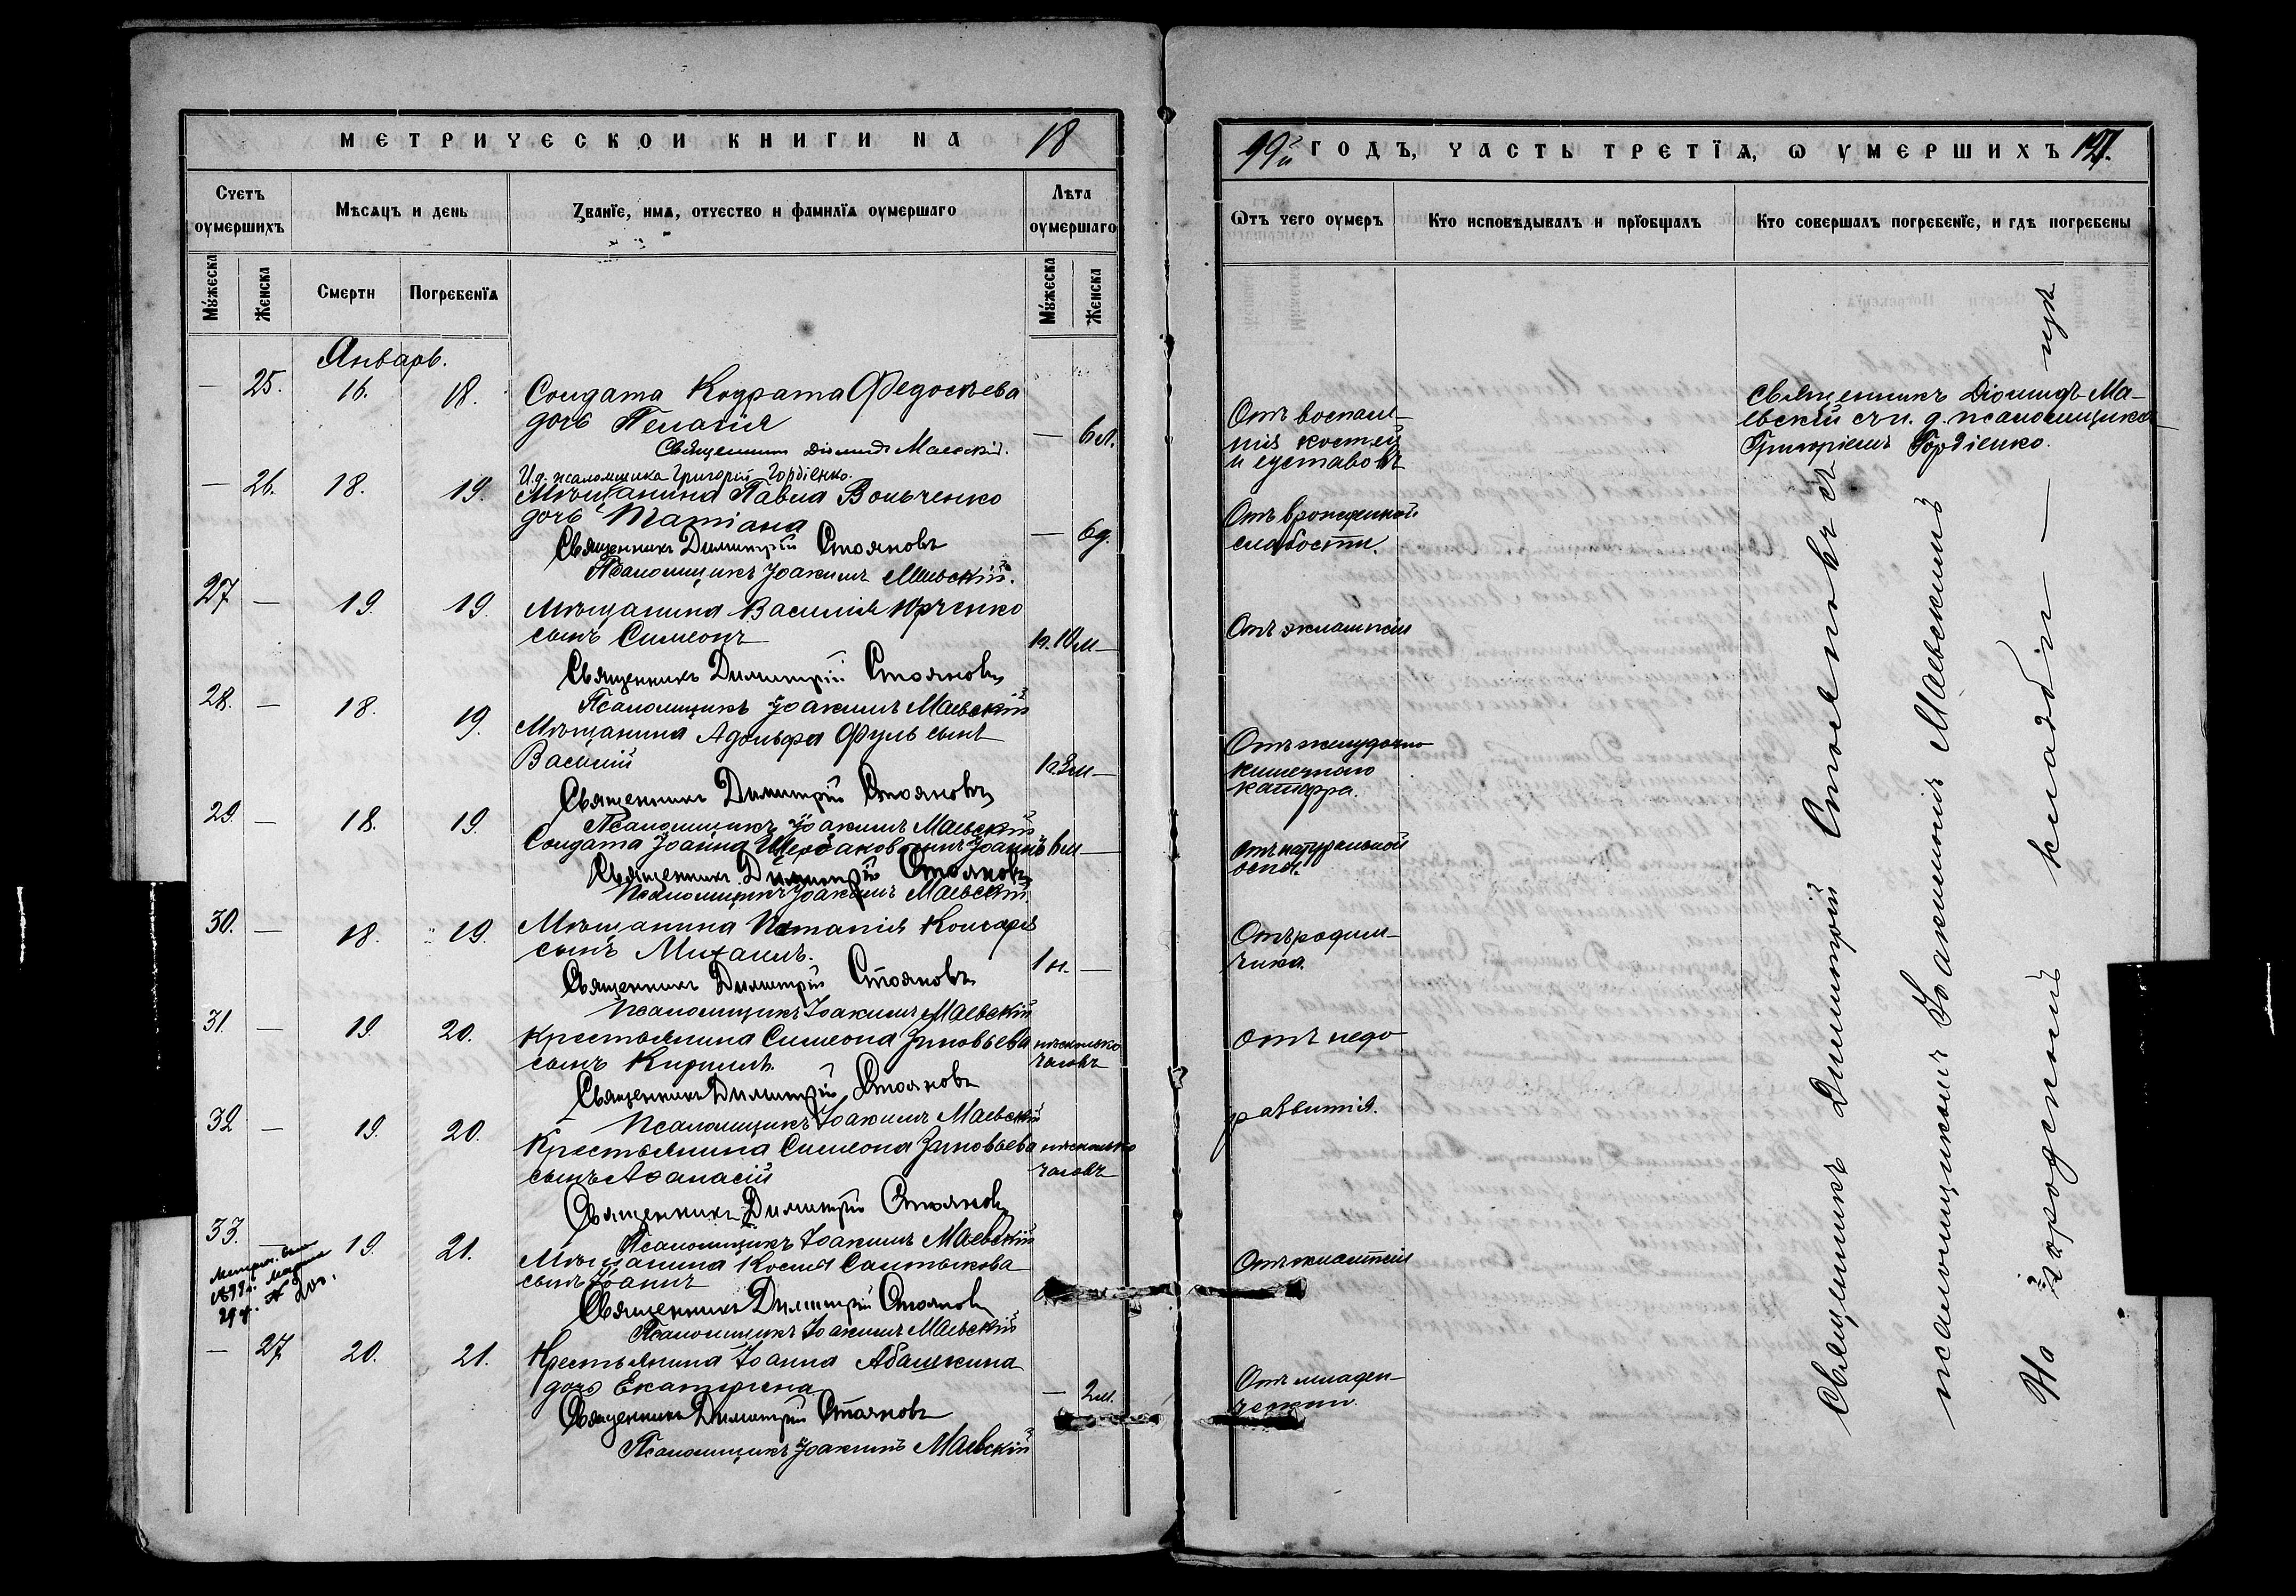 МЕТРИЧЕСКОЙ КНИГИ НА 18
Счетъ оумершихъ
Мѣсяцъ и день
Званїе, имя, отчество и фамилїя оумершаго
Лѣта оумершаго
Мужеска
Женска
Смерти
Погребенїя
Мужеска
Женска
Январь.
— 25. 16. 18. Солдата Кодрата Федосѣева
дочь Пелагія — 6л.
Священникъ Діомидъ Маевскій.
И.д. псаломщика Григорій Гордіенко.
— 26. 18. 19. Мѣщанина Павла Вольченко
дочь Татіана — 6д.
Священникъ Димитрій Стояновъ
Псаломщикъ Іоакимъ Маевскій.
27 — 19. 19. Мѣщанина Василія Юрченко
сынъ Симеонъ 1г. 10м —
Священникъ Димитрій Стояновъ
Псаломщикъ Іоакимъ Маевскій
28. — 18. 19. Мѣщанина Адольфа Фуль сынъ
Василій —
Священникъ Димитрій Стояновъ
Псаломщикъ Іоакимъ Маевскій
29. — 18. 19. Солдата Іоанна Щербакова сынъ Іоаннъ 6м —
Священникъ Димитрій Стояновъ
Псаломщикъ Іоакимъ Маевскій.
30. — 18. 19. Мѣщанина Потапія Кольаря
сынъ Михаилъ. 1н. —
Священникъ Димитрій Стояновъ
Псаломщикъ Іоакимъ Маевскій
31. — 19. 20. Крестьянина Симеона Зиновьева нѣсколько
сынъ Кириллъ. часовъ
Священникъ Димитрій Стояновъ
Псаломщикъ Іоакимъ Маевскій
32 — 19. 20. Крестьянина Симеона Зиновьева нѣсколько
сынъ Аѳанасій часовъ
Священникъ Димитрій Стояновъ
Псаломщикъ Іоакимъ Маевскій
33. — 19. 21. Мѣщанина Косма Салтыкова
сынъ Іоаннъ
Священникъ Димитрій Стояновъ
Псаломщикъ Іоакимъ Маевскій
— 27 20. 21. Крестьянина Іоанна Абашкина
дочь Екатерина — 2м.
Священникъ Димитрій Стояновъ
Псаломщикъ Іоакимъ Маевскій
99й ГОДЪ, ЧАСТЬ ТРЕТЇЯ, Ѡ УМЕРШИХЪ
Ѿтъ чего оумеръ
Кто исповѣдывалъ и прїобщалъ
Кто совершалъ погребенїе, и гдѣ погребены
Отъ воспале-
нія костей
и суставовъ
Священникъ Діомидъ Ма-
евскій съ и. д. псаломщика
Григоріемъ Гордіенко.
Отъ врожденной
слабости.
Отъ эклампсіи
Отъ желудочно
кишечнаго
катарра.
Отъ натуральной
оспы.
Отъ родим-
чика.
Отъ недо
развитія.
Отъ эклампсіи
Отъ младен-
ческой.
Священникъ Димитрій Стояновъ съ
псаломщикомъ Іоакимомъ Маевскимъ
На городскомъ кладби — щѣ